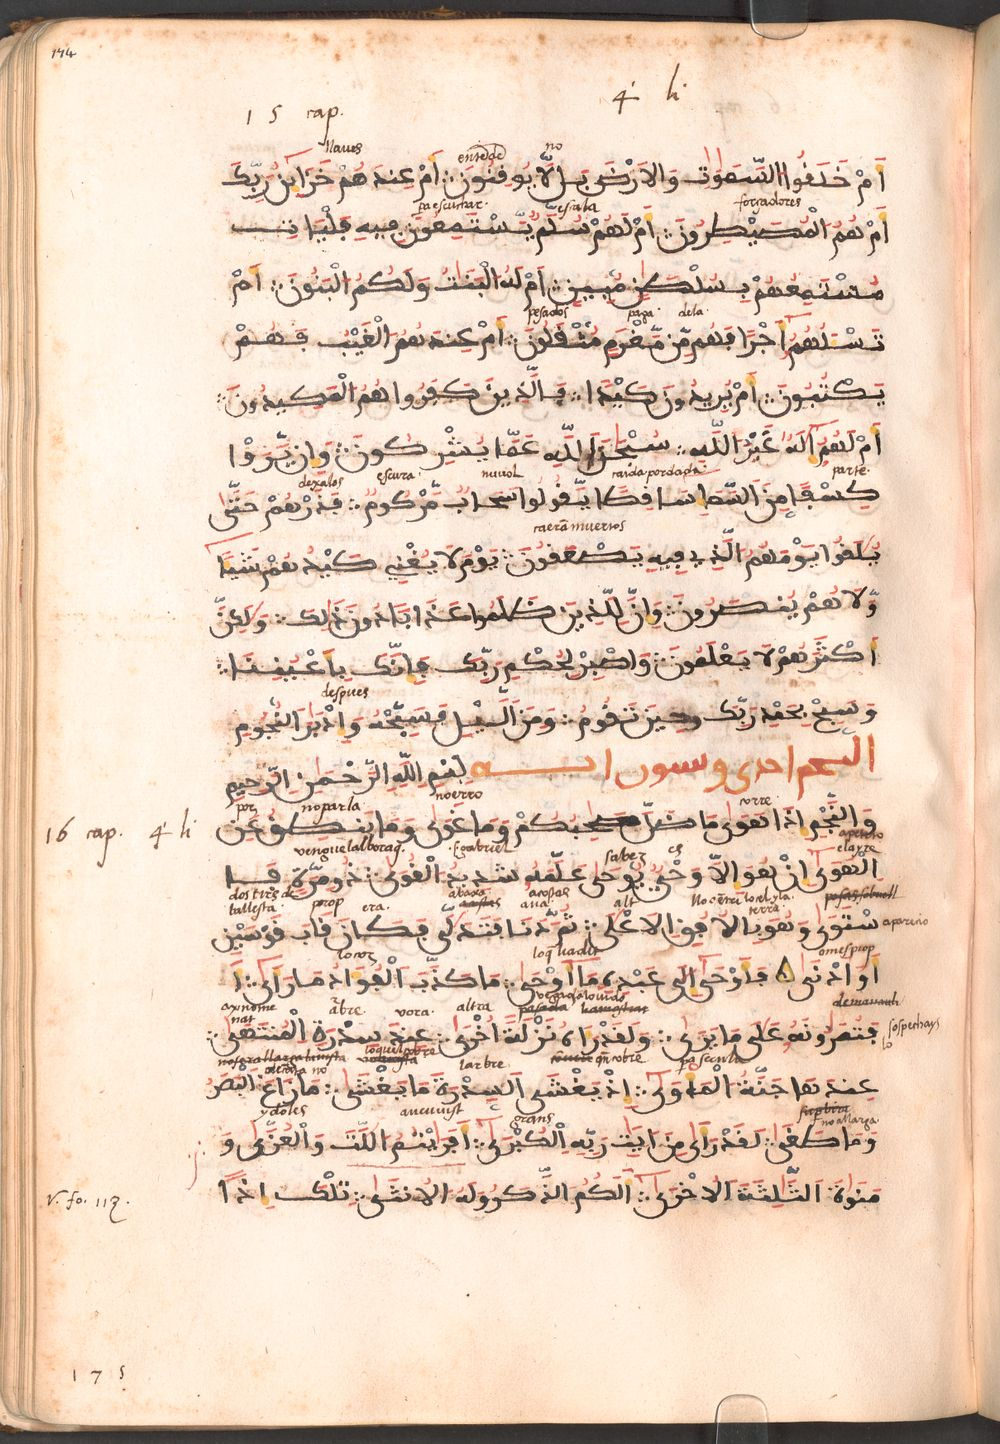 174
15 cap. 4 li
llaues entēde no
اَمْ خَلَقُوا السَّمَٰوَٰتِ وَالاَرْضَ بَل لَّا يُوقِنُونَ ۞ اَمْ عِندَهُمْ خَزَائِنُ رَبِّكَ
pa escuchar. escala forçadores
اَمْ هُمُ الْمُصَيْطِرُونَ ۞ اَمْ لَهُمْ سُلَّمٌ يَّسْتَمِعُونَ فِيهِ فَلْيَاتِ
مُسْتَمِعُهُمْ بِسُلْطَٰنٍ مُّبِينٍ ۞ اَمْ لَهُ الْبَنَٰتُ وَلَكُمُ الْبَنُونَ ۞ اَمْ
pesados paga. dela.
تَسْـَٔلُهُمُ اَجْرًا فَهُم مِّن مَّغْرَمٍ مُّثْقَلُونَ ۞ اَمْ عِندَهُمُ الْغَيْبُ فَهُمْ
يَكْتُبُونَ ۞ اَمْ يُرِيدُونَ كَيْدًا ۞ فَالَّذِينَ كَفَرُوا هُمُ الْمَكِيدُونَ ۞
اَمْ لَهُمُ اِلَٰهٌ غَيْرُ اللَّهِ ۞ سُبْحَٰنَ اللَّهِ عَمَّا يُشْرِكُونَ ۞ وَاِن يَّرَوْا
dexalos escura. nuvol caida por dada parte.
كِسْفًا مِّنَ السَّمَاءِ سَاقِطًا يَّقُولُوا سَحَابٌ مَّرْكُومٌ ۞ فَذَرْهُمْ حَتَّىٰ
caerā muertos
يُلَٰقُوا يَوْمَهُمُ الَّذِي فِيهِ يَصْعَقُونَ ۞ يَوْمَ لَا يُغْنِي كَيْدُهُمْ شَيْـًٔا
وَّلَا هُمْ يُنصَرُونَ ۞ وَاِنَّ لِلَّذِينَ ظَلَمُوا عَذَابًا دُونَ ذَٰلِكَ ۞ وَلَٰكِنَّ
اَكْثَرَهُمْ لَا يَعْلَمُونَ ۞ وَاصْبِرْ لِحُكْمِ رَبِّكَ فَاِنَّكَ بِاَعْيُنِنَا ۞
despues
وَسَبِّحْ بِحَمْدِ رَبِّكَ حِينَ تَقُومُ ۞ وَمِنَ الَّيْلِ فَسَبِّحْهُ وَاِدْبَٰرَ النُّجُومِ
النجم احدى وستون اية بِسْمِ اللَّهِ الرَّحْمَٰنِ الرَّحِيمِ
por no parla. no erro corre.
16 cap. 4 li وَالنَّجْمِ اِذَا هَوَىٰ مَا ضَلَّ صَٰحِبُكُمْ وَمَا غَوَىٰ وَمَا يَنطِقُ عَنِ
vengue lalborag. s. gabriel sabez es apetito
الْهَوَىٰ اِنْ هُوَ اِلَّا وَحْيٌ يُّوحَىٰ عَلَّمَهُ شَدِيدُ الْقُوَىٰ ۞ ذُو مِرَّةٍ فَا
dos tirs de ballesta prop era. abaxa acostas aua. alt terra aparicio
سْتَوَىٰ وَهُوَ بِالاُفُقِ الاَعْلَىٰ ۞ ثُمَّ دَنَا فَتَدَلَّىٰ فَكَانَ قَابَ قَوْسَيْنِ
lo cor omes prop
اَوْ اَدْنَىٰ ۞ فَاَوْحَىٰ اِلَىٰ عَبْدِهِ مَا اَوْحَىٰ ۞ مَا كَذَبَ الْفُوَادُ مَا رَاَىٰ ۞ اَ
abre. vora. altra sospechays
فَتُمَٰرُونَهُ عَلَىٰ مَا يَرَىٰ ۞ وَلَقَدْ رَاٰهُ نَزْلَةً اُخْرَىٰ ۞ عِندَ سِدْرَةِ الْمُنتَهَىٰ ۞
larbre
عِندَهَا جَنَّةُ الْمَاوَىٰ ۞ اِذْ يَغْشَى السِّدْرَةَ مَا يَغْشَىٰ ۞ مَا زَاغَ الْبَصَرُ
ydoles grans no allarga.
وَمَا طَغَىٰ ۞ لَقَدْ رَاَىٰ مِنَ ايَٰتِ رَبِّهِ الْكُبْرَىٰ ۞ اَفَرَايْتُمُ اللَّٰتَ وَالْعُزَّىٰ وَ
V. fo. 112. مَنَوٰةَ الثَّالِثَةَ الاُخْرَىٰ ۞ اَلَكُمُ الذَّكَرُ وَلَهُ الاُنثَىٰ ۞ تِلْكَ اِذًا
175